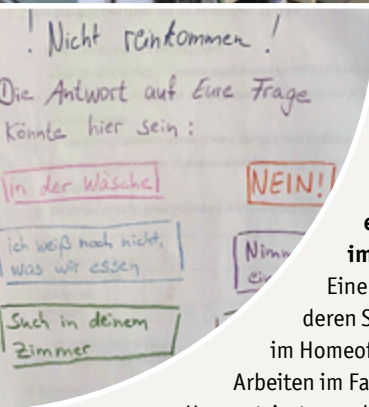 ! Nicht reinkommen !
Die Antwort auf Eure Frage
könnte hier sein :
in der Wäsche
NEIN!
ich weiß noch nicht,
was wir essen
Such in deinem
Zimmer
Eine
deren S
im Homeof
Arbeiten im Fa